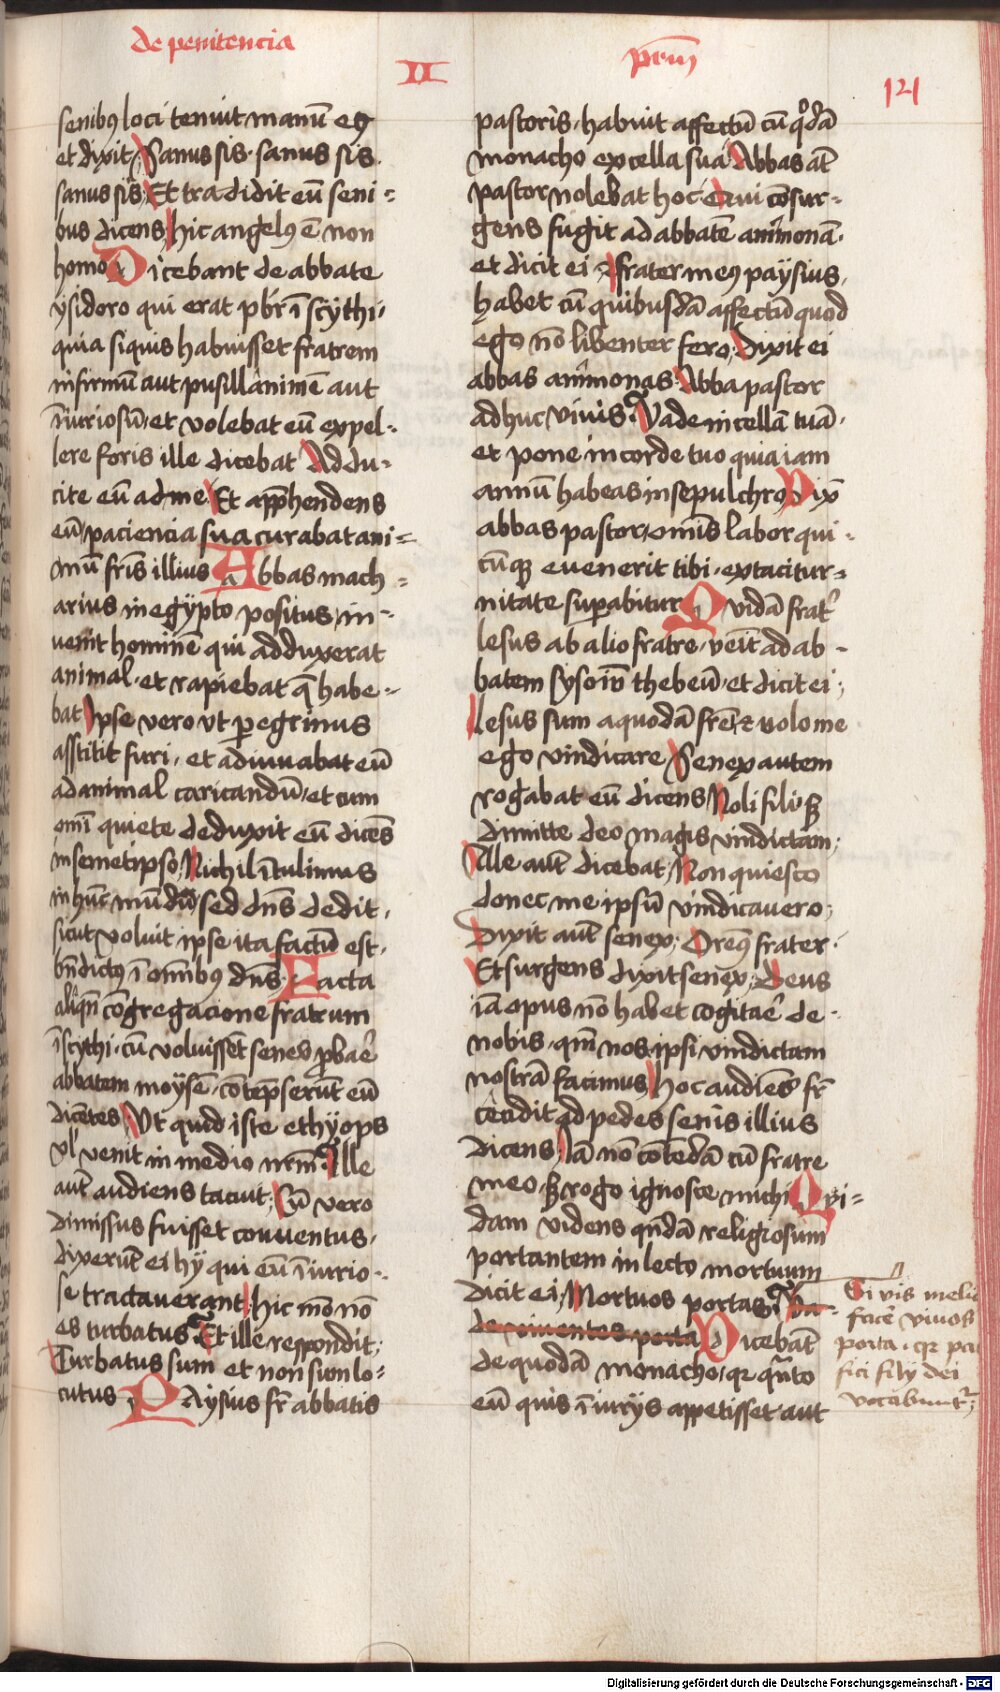 de penitencia
II
prm̄
121
senibꝰ loci tenuit manū eꝰ
et dixit Sanus sis · sanus sis
sanus sis Et tradidit eū seni=
bus dicens hic angelꝰ ē non
homo Dicebant de abbate
ysidoro qui erat pb̄r ī scythi·
quia siquis habuisset fratrem
infirmū aut pusillanimē aut
iniuriosū et volebat eū expel=
lere foris ille dicebat Addu=
cite eū ad me Et app̄hendens
eū paciencia sua curabat ani=
mū fr̄is illius Abbas mach=
arius in egypto positus in=
uenit hominē qui adduxerat
animal · et rapiebat q̄ habe=
bat Ipse vero vt peregrinus
asstitit furi · et adiuuabat eū
ad animal caricandū et cum
om̄i quiete deduxit eū dicēs
in semetipso Nichil ītulimus
in hūc mundū sed dn̄s dedit ·
sicut voluit ipse ita factū est ·
bn̄dictꝰ ī om̄ibus dn̄s Facta
aliqn̄ cōgregacione fratrum
ī scythi · cū voluissēt senes ꝓbaē
abbatem moysē · cōtēpserūt eū
dicētes Vt quid iste ethyops
vl̄ venit in medio nr̄m Ille
aūt audiens tacuit Cū vero
dimissus fuisset conuentus ·
dixerūt ei hy qui eū īiurio=
se tractauerant hic mō nō
es turbatus Et ille respondit
Turbatus sum et non sum lo=
cutus Paysius fr̄ abbatis
pastoris · habuit affectū cū qodā
monacho ex cella sua Abbas āt
pastor nolebat hoc Qui cōsur=
gens fugit ad abbatē ammonā ·
et dicit ei frater meꝰ paysius ·
habet cū quibusdā affectū quod
ego nō libenter fero Dixit ei
abbas ammonas Abba pastor
adhuc viuis Vade in cellā tuā ·
et pone in corde tuo quia iam
annū habeas in sepulchro Dix̄
abbas pastor om̄is labor qui=
cūqꝫ euenerit tibi · ex tacitur=
nitate suꝑabitur Quidā frat̄
lesus ab alio fratre · veīt ad ab=
batem sysoiō thebeū · et dicit ei
Lesus sum a quodā frē et uolo me
ego vindicare Senex autem
rogabat eū dicens Noli fili sꝫ
dimitte deo magis vindictam
Ille aūt dicebat Non quiesco
donec me ipsū vindicauero
Dixit aūt senex Oremꝰ frater
Et surgens dixit senex Deus
iā opus nō habet cogitaē de
nobis · qm̄ nos ipsi vindictam
nostrā facimus hoc audiēs fr̄
cecidit ad pedes senis illius
dicens Iā nō cōtēdā cū fratre
meo sꝫ rogo ignosce michi Qui=
dam videns qn̄dā religiosum
portantem in lecto mortuum
dicit ei Mortuos portas
de viuentes porta Dicebāt
de quodā monacho qꝛ quāto
eū quis īiurijs appetisset aut
Si vis meli
facē viuos
porta · qꝛ pa
fici filij dei
vocabunt̄
Digitalisierung gefördert durch die Deutsche Forschungsgemeinschaft - DFG